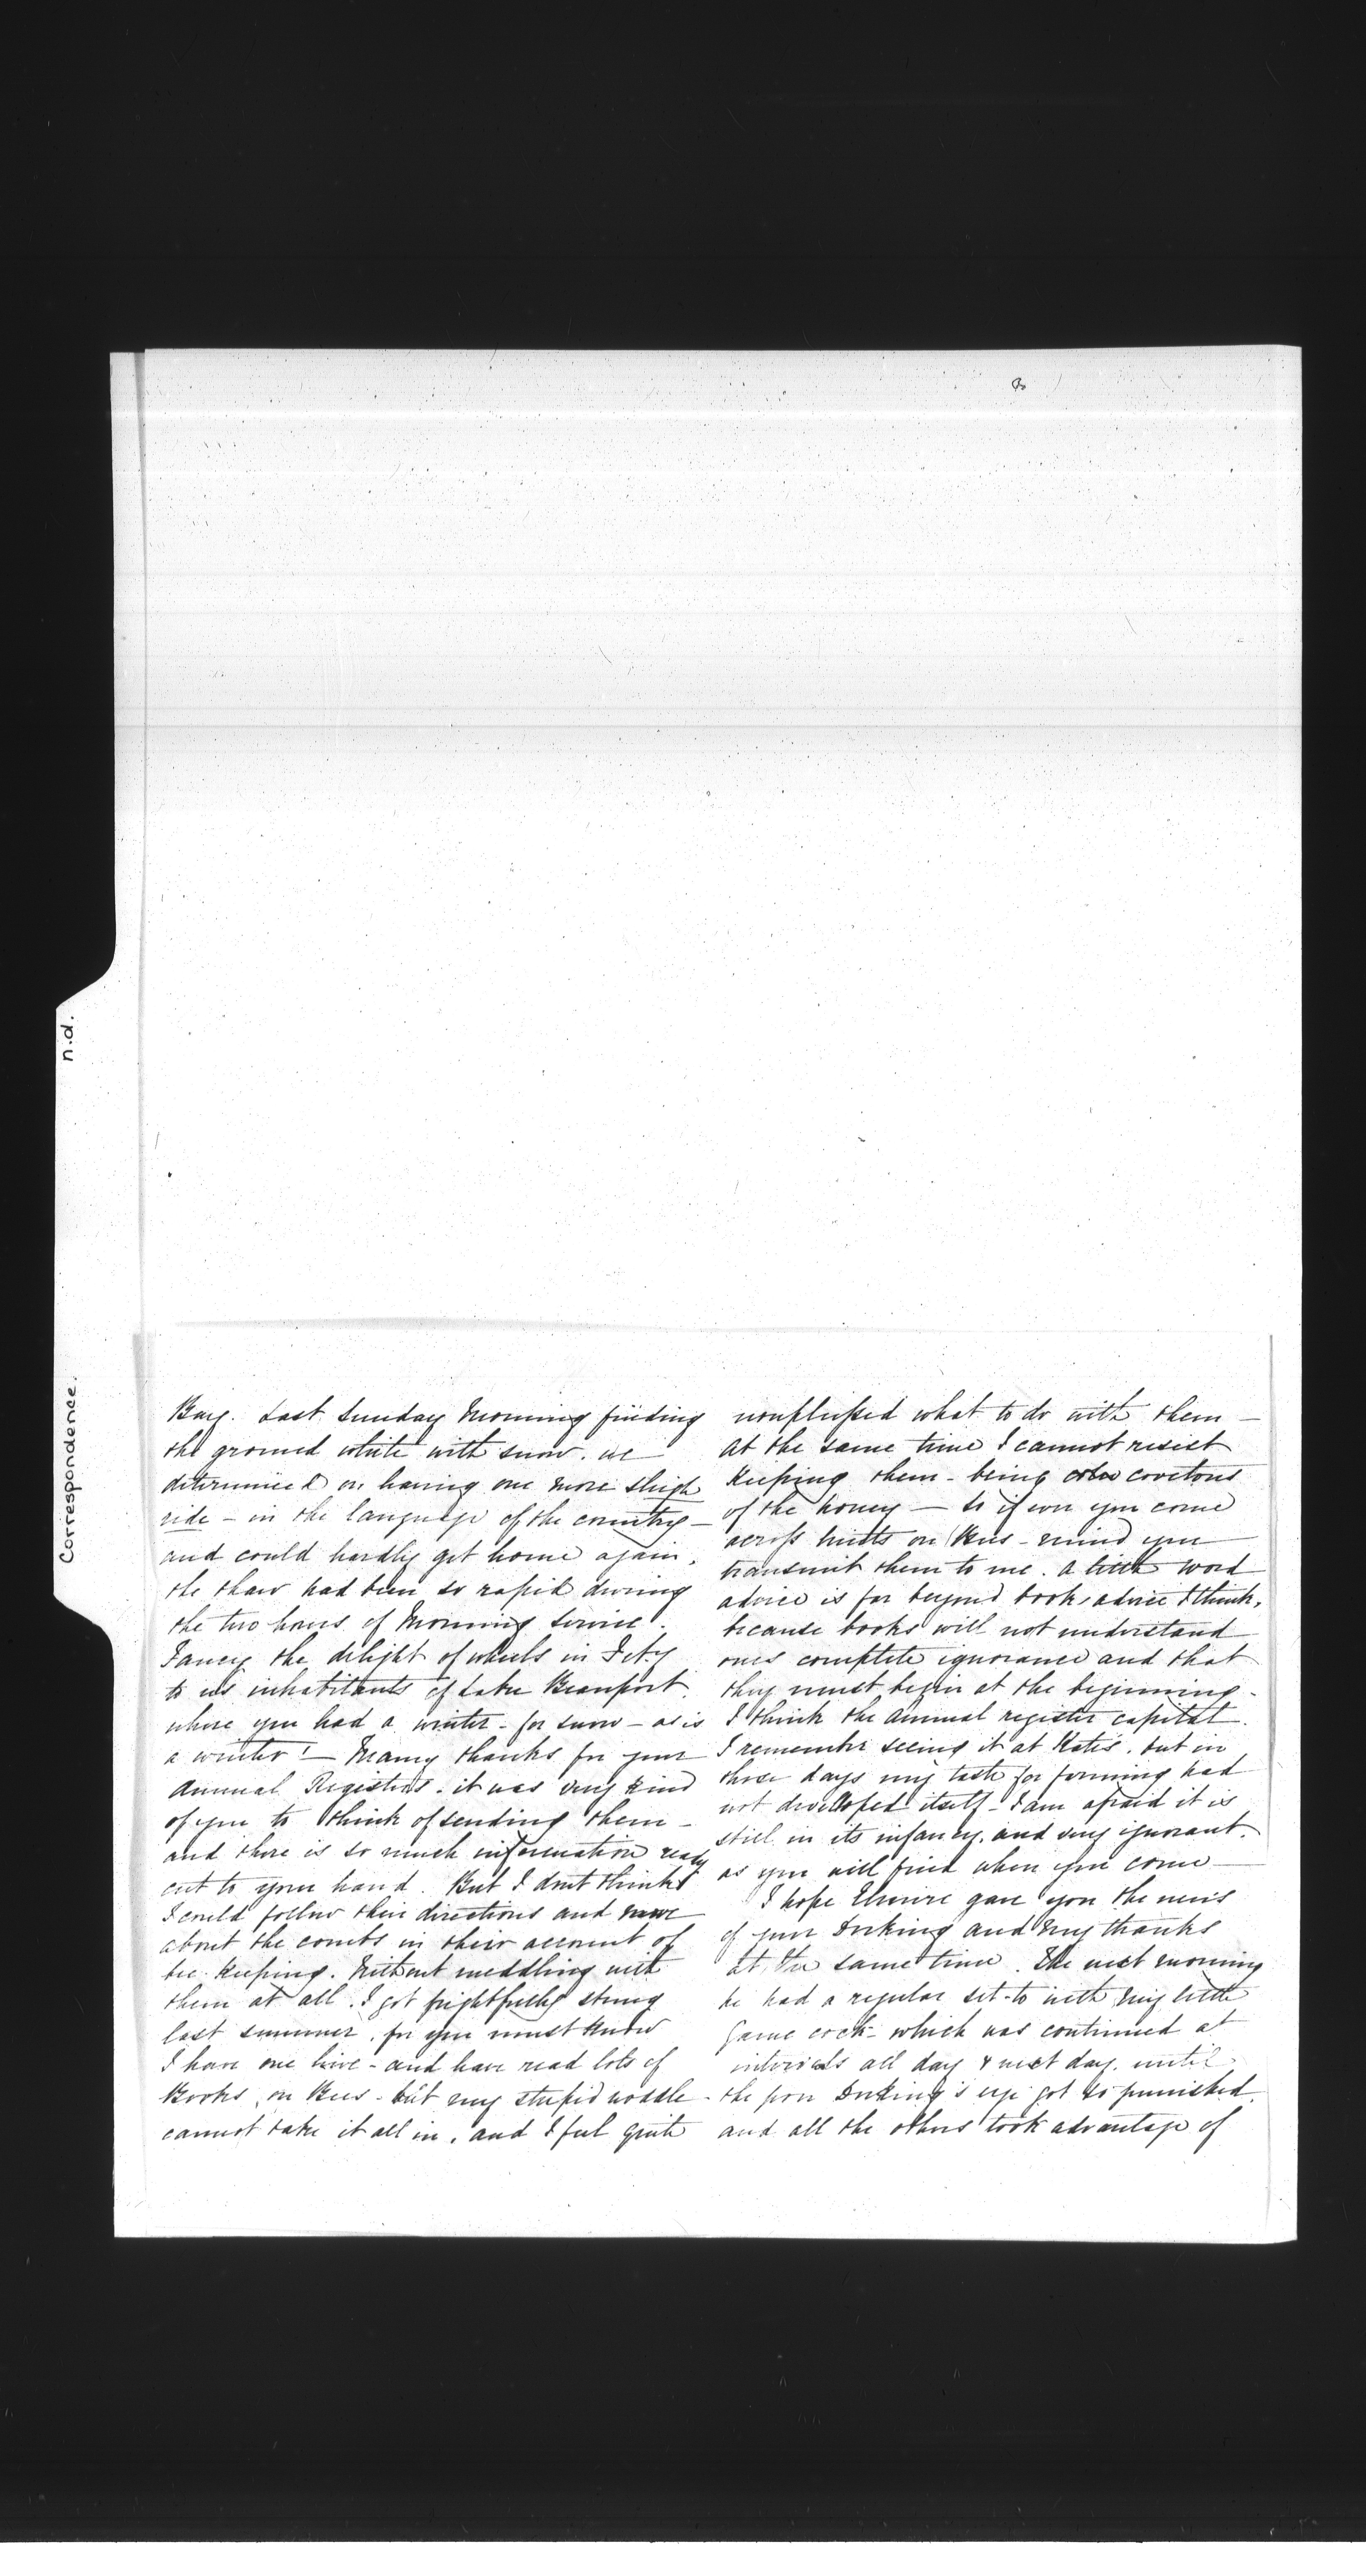 Correspondence. n.d.
Bay. Last Sunday Morning finding
the ground white with snow. we
determined on having one more sleigh
ride - in the language of the country -
and could hardly get home again,
the thaw had been so rapid during
the two hours of Morning Service.
Fancy the delight of wheels in Feby
to us inhabitants of Lake Beauport.
where you had a winter - for snow - as is
a winter! - Many thanks for your
Annual Registers. it was very kind
of you to think of sending them -
and there is so much information ready
cut to your hand. But I dont think
I could follow their directions and move
about the combs in their account of
bee keeping. Without meddling with
them at all. I got frightfully stung
last summer. for you must know
I have one hive - and have read lots of
Books, on Bees - but my stupid noddle
cannot take it all in, and I feel quite
nonplussed what to do with them -
at the same time I cannot resist
keeping them - being covetous
of the honey - so if ever you come
across hints on Bees - mind you
transmit them to me. a little word
advice is far beyond book, advice I think,
because books will not understand
ones complete ignorance and that
they must begin at the beginning -
I think the annual register capital.
I remember seeing it at Kate's. but in
those days my taste for farming had
not developed itself - I am afraid it is
still in its infancy, and very ignorant.
as you will find when you come -
I hope Elmire gave you the news
of your Dorking and my thanks
at the same time. The next morning
he had a regular set-to with my little
Game cock - which was continued at
intervals all day & next day. until
the poor Dorking's eye got so punished.
and all the others took advantage of